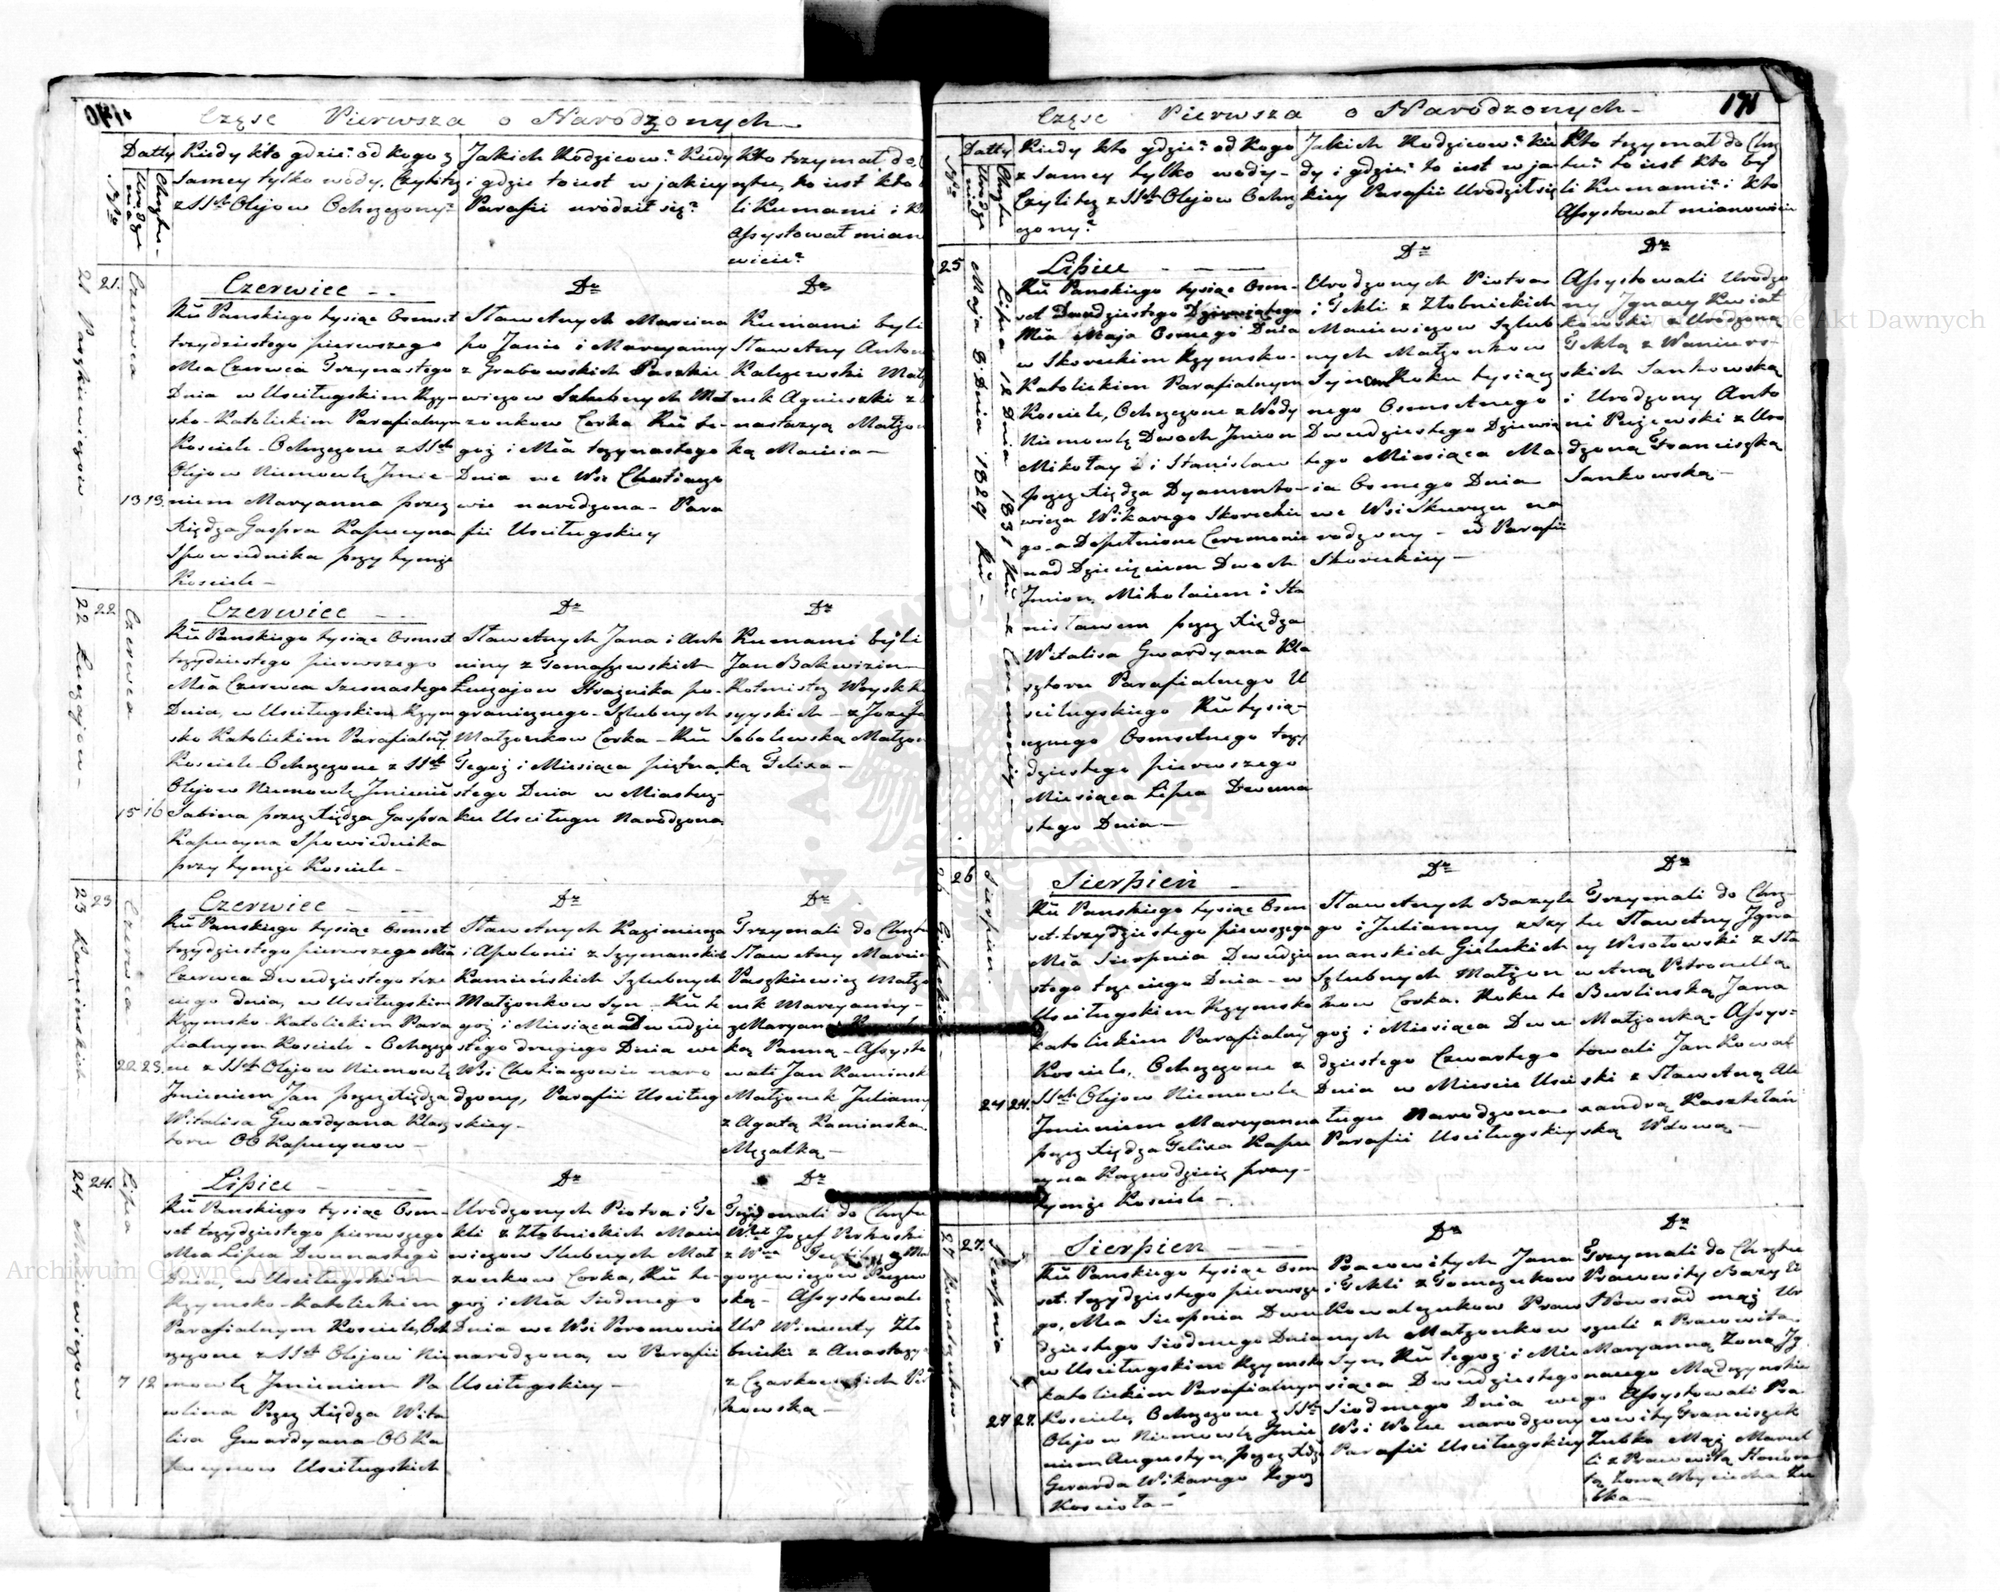 Część Pierwsza o Narodzonych
Datty
Chrztu
Urodze
nia
Nro
Kiedy kto gdzie? od kogo z
samey tylko wody, Czyli też
z SStch Olejow Ochrzczony?
Jakich Rodzicow? Kiedy
i gdzie to iest w jakiey
Parafii urodził się?
Kto trzymał do
to iest kto
li Kumami i K
Assystował mian
wicie?
21.
21 Paszkiewiczow
Czerwca
13 13
Czerwiec
Ru Panskiego tysiąc Osmset
trzydziestego pierwszego
Mca Czerwca Trzynastego
Dnia w Usciługskim Rzym
sko-Katolickim Parafialnym
Kosciele - Ochrzczone z SStch
Olejow Niemowle Imie-
niem Maryanna przez
Xiędza Gaspra Kapucyna
Spowiednika przy tymże
Kosciele -
Dto
Sławetnych Marcina
po Janie i Maryanny
z Grabowskich Paszkie
wiczow Szlubnych Mał
zonkow Corka Ru te-
goż i Mca trzynastego
Dnia we Wsi Chotiaczo
wie narodzona - Para
fii Usciługskiey
Dto
Kumami byli
Sławetny Anton
Kaliszewski Mał
nek Agnieszki z
nastazyą Małżon
ką Macieia -
22.
22 Łuczajow
Czerwca
15 16
Czerwiec
Ru Panskiego tysiąc Osmset
trzydziestego pierwszego
Mca Czerwca Szesnastego
Dnia, w Usciługskim Rzym
sko Katolickim Parafialny
Kosciele Ochrzczone z SStch
Olejow Niemowle Imieniem
Sabina przez Xiędza Gaspra
Kapucyna Spowiednika
przy tymże Kosciele -
Dto
Sławetnych Jana i Anto
niny z Tomaszewskich
Łuczajow Strażnika po-
granicznego - Szlubnych
Małżonkow Corka - Ru
Tegoż i Miesiąca piętna
stego Dnia w Miastecz-
ku Usciługu Narodzona
Dto
Kumami byli
Jan
Rotmistrz Woysk R
syyskich - z Jozefą
Sobolewską Małżon
ką Felixa -
23
23 Kaminskich
Czerwca
22 23
Czerwiec
Ru Panskiego tysiąc Osmset
trzydziestego pierwszego Mca
Czerwca Dwudziestego trze
ciego dnia, w Usciługskim
Rzymsko-Katolickim Para
fialnym Kosciele - Ochrzczo
ne z SStch Olejow Niemowle
Imieniem Jan przez Xiędza
Witalisa Gwardyana Klasz
toru OO Kapucynow -
Dto
Sławetnych Kazimierza
i Apolonii z Szymanskich
Kaminskich Szlubnych
Małżonkow Syn - Ru te
goż i Miesiąca Dwudzie
stego drugiego Dnia we
Wsi Chotiaczowie naro
dzony, Parafii Usciług
skiey -
Dto
Trzymali do Chrztu
Sławetny Marcin
Paszkiewicz Małżo
nek Maryanny -
z Maryanną
ką Panną - Assysto
wali Jan Kaminsk
Małżonek Julianny
z Agatą Kaminską
Mężatką -
24.
24 Maniewiczow
Lipca
7 12
Lipiec
Ru Panskiego tysiąc Osm-
set trzydziestego pierwszego
Mca Lipca Dwunastego
Dnia, w Usciługskim
Rzymsko-Katolickim
Parafialnym Kosciele, Och
rzczone z SStch Olejow Nie
mowle Imieniem Pa
wlina Przez Xiędza Wita
lisa Gwardyana OO Ka
pucynow Usciługskich
Dto
Urodzonych Piotra i Te
kli z Złobnickich Manie
wiczow Slubnych Mał
zonkow Corka, Ru te-
goż i Mca Siodmego
Dnia we Wsi Poromowie
narodzona, w Parafii
Usciługskiey -
Dto
Trzymali do Chrztu
Jozef
z
ską - Assystowali
Ur Wincenty Zło
bnicki z Anastazyą
z
kowską -
Część Pierwsza o Narodzonych
171
Datty
Chrztu
Urodze
nia
Nro
Kiedy kto gdzie? od kogo
z samey tylko wody -
Czyli też z SStch Olejow Ochrz
czony?
Jakich Rodzicow? Kie
dy i gdzie? to iest w ja
kiey Parafii Urodził się
Kto trzymał do Chrz
tu? to iest kto by
li Kumami? i kto
Assystował mianowicie
25
Maja 8 Dnia 1829 Ru -
Lipca 12 Dnia 1831 Ru z Ceremoniy
Lipiec
Ru Panskiego tysiąc Osm-
set Dwudziestego Dziewiątego
Mca Maja Osmego Dnia
w Skoreckim Rzymsko-
Katolickim Parafialnym
Kosciele, Ochrzczone z Wody
Niemowle Dwoch Imion
Mikołay i Stanisław
przez Xiędza Dyamento-
wicza Wikarego Skoreckie
go - a Dopełnione Ceremonie
nad Dziecięciem Dwoch
Imion, Mikołaiem i Sta
nisławem przez Xiędza
Witalisa Gwardyana Kla
sztoru Parafialnego U
sciługskiego Ru tysią-
cznego Osmsetnego trzy
dziestego pierwszego
Miesiąca Lipca Dwuna
stego Dnia -
Dto
Urodzonych Piotra
i Tekli z Złobnickich
Maniewiczow Szlub
nych Małżonkow
Syn Roku tysiącz
nego Osmsetnego
Dwudziestego Dziewią
tego Miesiąca Ma
ia Osmego Dnia
we Wsi Skurczu na
rodzony - w Parafii
Skoreckiey -
Dto
Assystowali Urodzo
ny Ignacy Kwiat
kowski z Urodzoną
Teklą z
skich Sankowską
i Urodzony Anto
ni z Uro
dzoną Franciszką
Sankowską -
26
Sierpnia
24 24
Sierpień
Ru Panskiego tysiąc Osm
set trzydziestego pierwszego
Mca Sierpnia Dwudzie
stego trzeciego Dnia - w
Usciługskim Rzymsko
katolickim Parafialny
Kosciele, Ochrzczone z
SStch Olejow Niemowle
Imieniem Maryanna
przez Xiędza Felixa Kapu
cyna Kaznodzieię przy-
tymże Kosciele -
Dto
Sławetnych Bazyle
go i Julianny z Szy
manskich Gieluckich
Szlubnych Małżon
kow Corka. Roku te
goż i Miesiąca Dwu
dziestego Czwartego
Dnia w Miescie Usci
ługu Narodzona
Parafii Usciługskiey
Dto
Trzymali do Chrz-
tu Sławetny Igna
cy Wesołowski z Sła
wetną Petronellą
Burlinską Jana
Małżonką - Assys-
towali Jan Kowal
ski z Sławetną Ale
xandrą Kasztelań
ską Wdową -
27.
27 Kowalczukow
Sierpnia
27 27
Sierpień
Ru Panskiego tysiąc Osm
set. trzydziestego pierwsze
go, Mca Sierpnia Dwu
dziestego Siodmego Dnia
w Usciługskim Rzymsko
katolickim Parafialnym
Kosciele, Ochrzczone z SStch
Olejow Niemowle Imie
niem Augustyn, przez Xdza
Gerarda Wikarego tegoż
Kosciola -
Dto
Pracowitych Jana
i Tekli z Tomczukow
Kowalczukow Praw
nych Małżonkow
Syn, Ru tegoż i Mie
siąca Dwudziestego
Siodmego Dnia we
Wsi Wolce narodzony
Parafii Usciługskiey
Dto
Trzymali do Chrztu
Pracowity Bazyli
Nowosad mąż Ur
szuli z Pracowitą
Maryanną Zoną Ig
nacego Mądrzynskie
go Assystowali Pra
cowity Franciszek
Zubko Mąż Maryel
li z Pracowitą Honora
tą żoną Woyciecha Zu
bka -
Archiwum Główne Akt Dawnych
Archiwum Główne Akt Dawnych